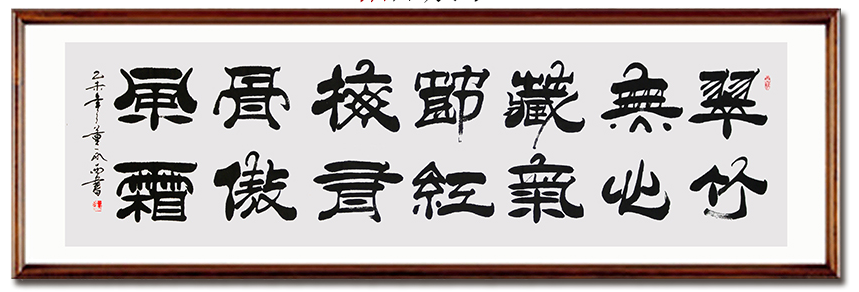 翠竹
無心
藏氣
節紅
梅有
骨傲
風霜
乙未年董西書